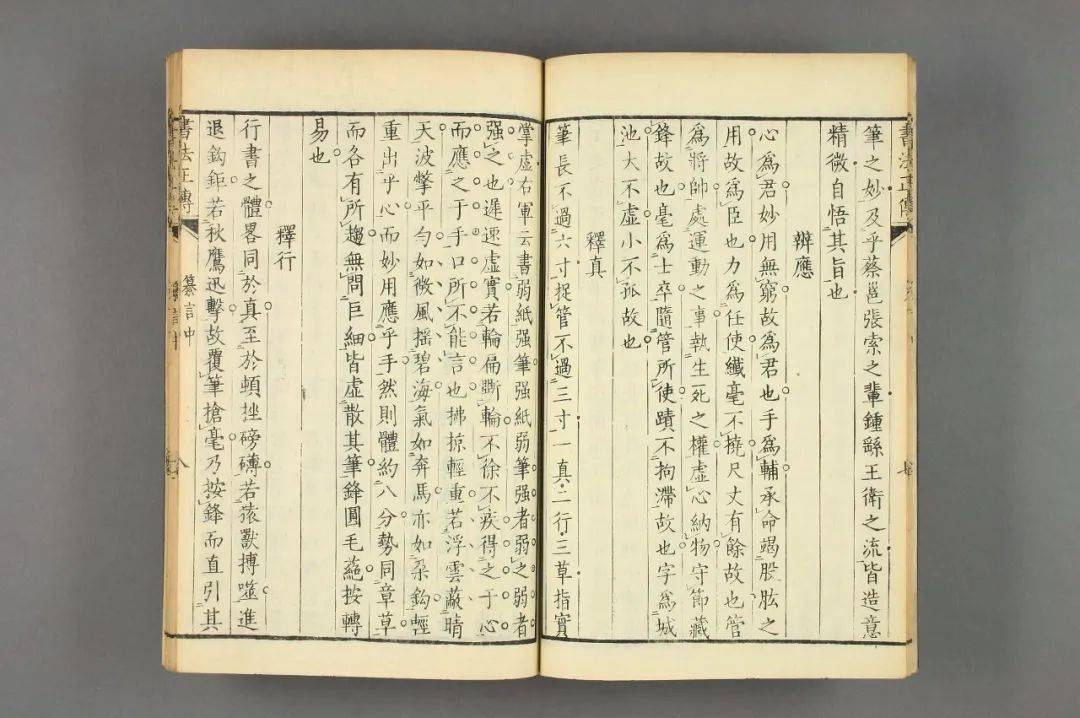 筆之妙及乎蔡邕張索之輩鍾繇王衛之流皆造意
精微自悟其旨也
辨應
心為君妙用無窮故為君也手為輔承命竭股肱之
用故為臣也力為任使纖毫不撓尺丈有餘故也管
為將帥處運動之事執生死之權虛心納物守節藏
鋒故也毫為士卒隨管所使蹟不拘滯故也字為城
池大不虛小不孤故也
釋真
筆長不過六寸捉管不過三寸一真二行三草指實
掌虛右軍云書弱紙强筆强紙弱筆强者弱之弱者
强之也遲速虛實若輪扁斲輪不徐不疾得之于心
而應之于手口所不能言也拂掠輕重若浮雲蔽晴
天波撆平勻如微風摇碧海氣如奔馬亦如朶鈎輕
重出乎心而妙用應乎手然則體約八分勢同章草
而各有所趨無問巨細皆虛散其筆鋒圓毛蕝按轉
易也
釋行
行書之體畧同於真至於頓挫磅礴若猿獸搏噬進
退鈎鉅若秋鷹迅擊故覆筆搶毫乃按鋒而直引其
書法正傳
纂言中
八